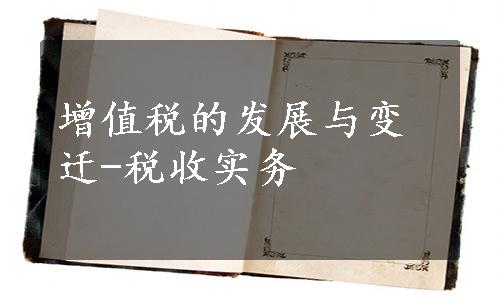 增值税的发展与变
迁-税收实务